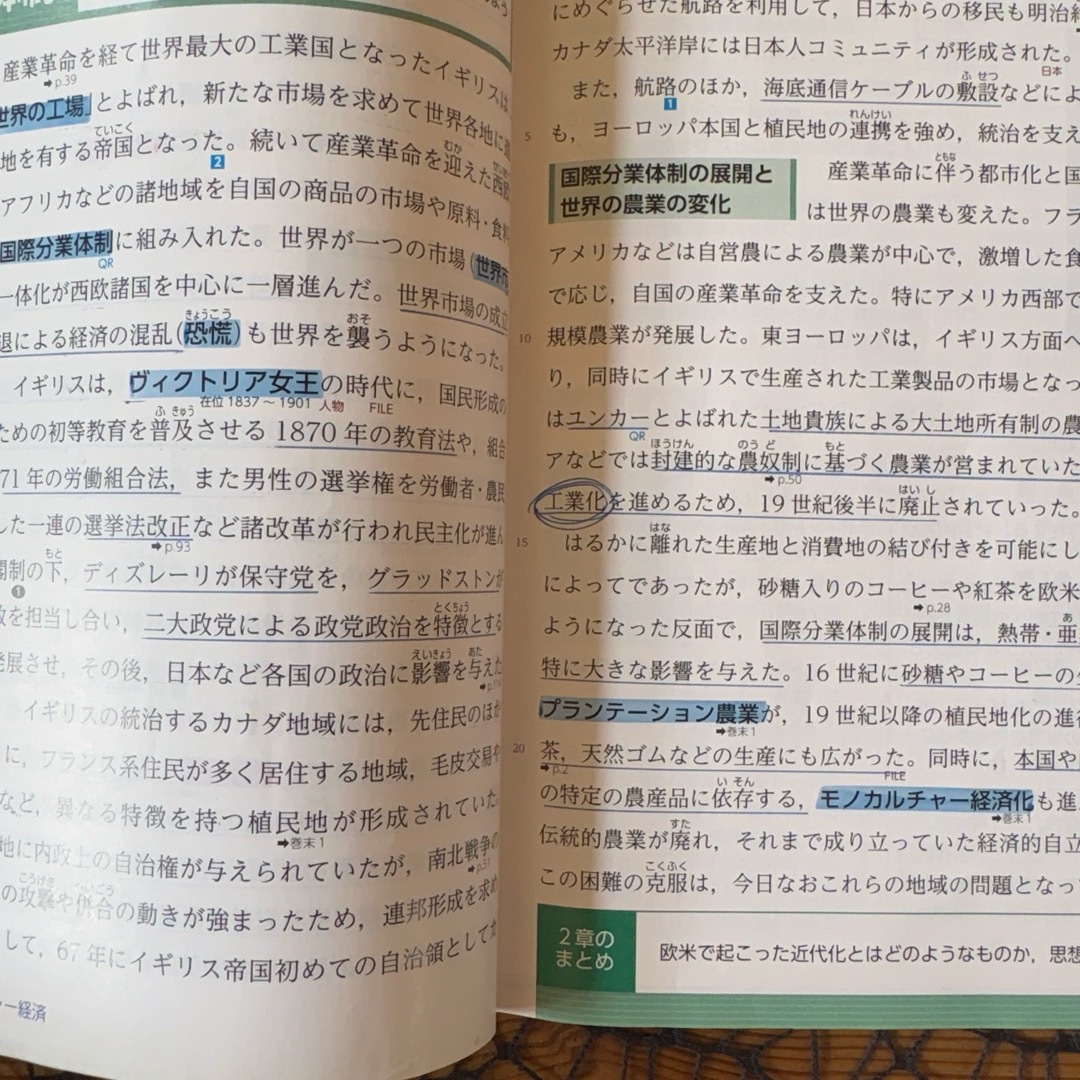 産業革命を経て世界最大の工業国となったイギリスは
➡p.39
世界の工場」とよばれ，新たな市場を求めて世界各地に
ていこく
地を有する帝国となった。続いて産業革命を迎えた西
2
むか
アフリカなどの諸地域を自国の商品の市場や原料・食料
国際分業体制に組み入れた。世界が一つの市場（世界市
QR
一体化が西欧諸国を中心に一層進んだ。世界市場の成立
きょうこう
おそ
退による経済の混乱（恐慌）も世界を襲うようになった。
イギリスは，ヴィクトリア女王の時代に，国民形成の
在位 1837～1901 人物 FILE
ふ きゅう
ための初等教育を普及させる 1870 年の教育法や，組合
71 年の労働組合法，また男性の選挙権を労働者・農民
した一連の選挙法改正など諸改革が行われ民主化が進ん
➡p.93
もと
閣制の下，ディズレーリが保守党を，グラッドストンが
❶
を担当し合い，二大政党による政党政治を特徴とする
とくちょう
発展させ，その後，日本など各国の政治に影響を与えた
えいきょう
あた
イギリスの統治するカナダ地域には，先住民のほか
に，フランス系住民が多く居住する地域，毛皮交易や
など，異なる特徴を持つ植民地が形成されていた。
➡巻末1
地に内政上の自治権が与えられていたが，南北戦争の
➡p.51
こうげき
へいごう
の攻撃や併合の動きが強まったため，連邦形成を求め
して，67 年にイギリス帝国初めての自治領としてカ
ー経済
にめぐらせた航路を利用して，日本からの移民も明治
カナダ太平洋岸には日本人コミュニティが形成された。
日本
また，航路のほか，海底通信ケーブルの敷設などによ
1
ふ せつ
れんけい
5
も，ヨーロッパ本国と植民地の連携を強め，統治を支え
国際分業体制の展開と
世界の農業の変化
ともな
産業革命に伴う都市化と国
は世界の農業も変えた。フラ
アメリカなどは自営農による農業が中心で，激増した食
で応じ，自国の産業革命を支えた。特にアメリカ西部で
10
規模農業が発展した。東ヨーロッパは，イギリス方面へ
り，同時にイギリスで生産された工業製品の市場となっ
はユンカーとよばれた土地貴族による大土地所有制の農
QR
ほうけん
のう ど
もと
アなどでは封建的な農奴制に基づく農業が営まれていた
➡p.50
はい し
工業化を進めるため，19 世紀後半に廃止されていった。
はな
15
はるかに離れた生産地と消費地の結び付きを可能にし
によってであったが，砂糖入りのコーヒーや紅茶を欧米
➡p.28
ようになった反面で，国際分業体制の展開は，熱帯・亜
あ
特に大きな影響を与えた。16 世紀に砂糖やコーヒーの
プランテーション農業が，19 世紀以降の植民地化の進
➡巻末1
20
茶，天然ゴムなどの生産にも広がった。同時に，本国や
➡p.2
い そん
FILE
の特定の農産品に依存する，モノカルチャー経済化も進
➡巻末1
すた
伝統的農業が廃れ，それまで成り立っていた経済的自立
こくふく
この困難の克服は，今日なおこれらの地域の問題となっ
2章の
まとめ
欧米で起こった近代化とはどのようなものか，思想